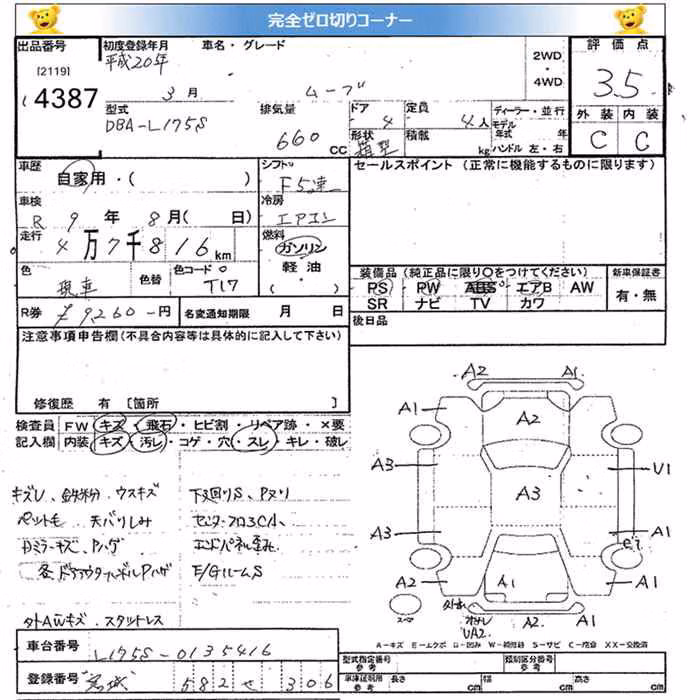 完全ゼロ切りコーナー
出品番号
[2119]
4387
初度登録年月
平成20年
3月
車名・グレード
ムーブ
2WD
・
4WD
評価点
3.5
外装 内装
C C
型式
DBA-L175S
排気量
660 CC
ドア
4
形状
箱型
定員
4人
積載
kg
ディーラー・並行
モデル年式 年
ハンドル 左・右
車歴
自家用・( )
シフト
F5速
セールスポイント (正常に機能するものに限ります)
車検
R 9年 8月( 日)
冷房
エアコン
走行
4万7千816km
燃料
ガソリン
軽油
・( )
色
現車
色替
色コード
T17
装備品 (純正品に限り○をつけてください)
PS PW ABS エアB AW
SR ナビ TV カワ
新車保証書
有・無
R券 ¥9,260-円
名変通知期限 月 日
後日品
注意事項申告欄(不具合内容等は具体的に記入して下さい)
修復歴 有 [箇所 ]
検査員 FW キズ・飛石・ヒビ割・リペア跡・×要
記入欄 内装 キズ・汚レ・コゲ・穴・スレ・キレ・破レ
キズレ、鉄粉、ウスキズ
ペット毛 天バリしみ
カミラーキズ、Pハゲ
各ドアアウターハンドルPハゲ
外AWキズ・スタットレス
下廻りS、Pヌリ
センターフロアCA、
エンドパネル歪み
E/GルームS
A2 A1
A1 A2
A3 U1
A3
A3 A1
A2 A1 A1
A2 A1
UA2
スペアー
A-キズ E-エクボ U-凹み W-補修跡 S-サビ C-腐食 XX-交換済
車台番号 L175S-0135416
登録番号 宮城 582 せ 306
型式指定番号
参考
類別区分番号
参考
車庫証明用
参考
長さ cm 幅 cm 高さ cm